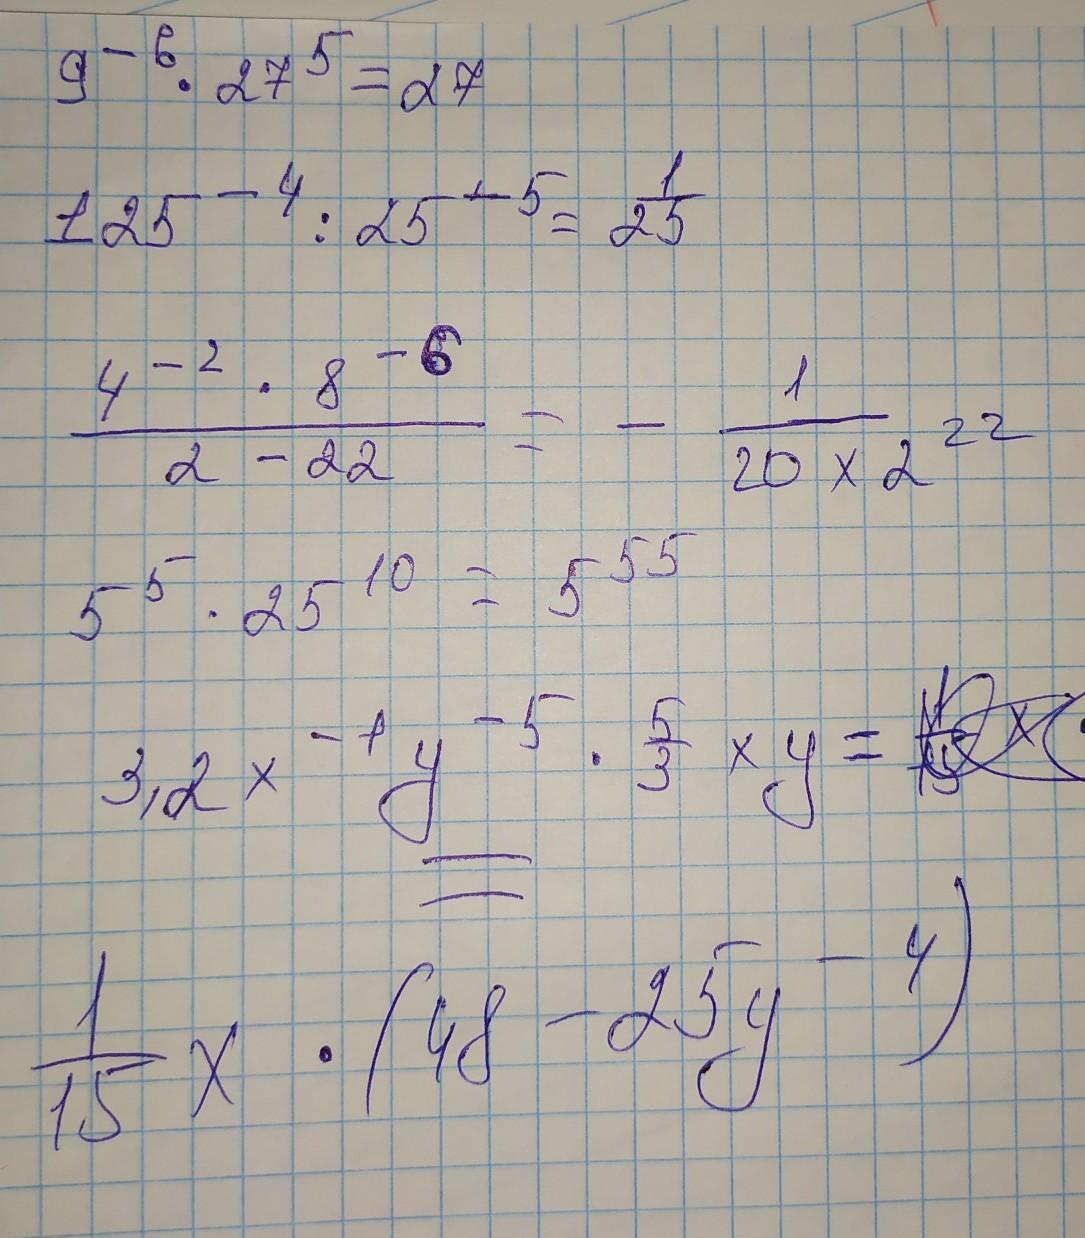 9^{-6} · 27^5 = 27
125^{-4} : 25^{-5} = \frac{1}{25}
\frac{4^{-2} · 8^{-6}}{2 - 22} = - \frac{1}{20 × 2^{22}}
5^5 · 25^{10} = 5^{55}
3,2 x^{-1} y^{-5} · \frac{5}{3} x y =
\frac{1}{15} x · (48 - 25y^{-4})